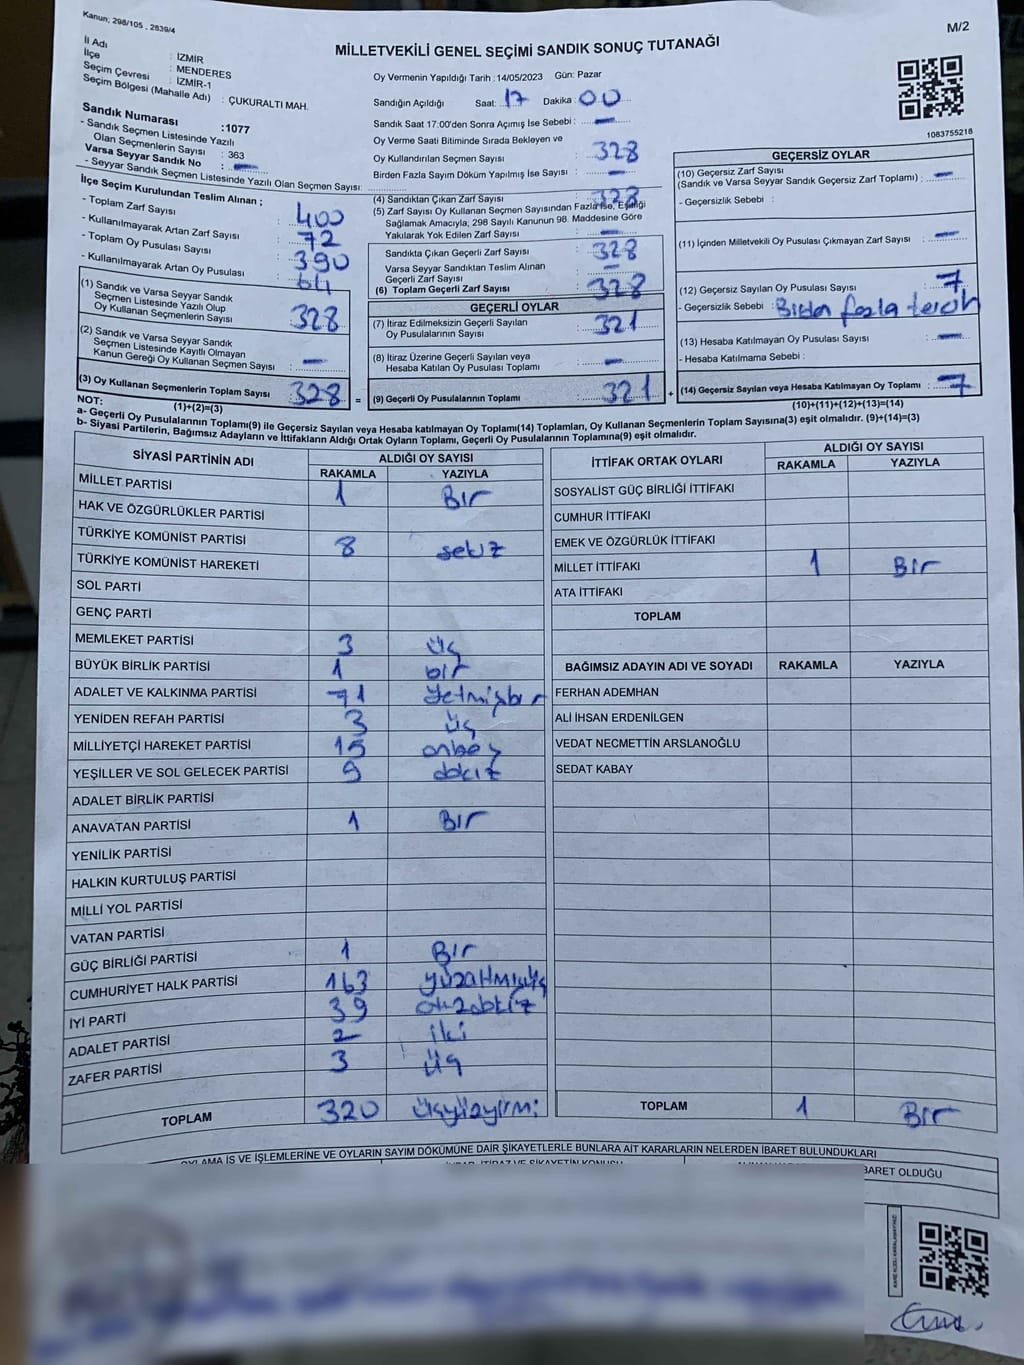 Kanun; 298/105 , 2839/4
M/2
MİLLETVEKİLİ GENEL SEÇİMİ SANDIK SONUÇ TUTANAĞI
İl Adı : İZMİR
İlçe : MENDERES
Seçim Çevresi : İZMİR-1
Seçim Bölgesi (Mahalle Adı) : ÇUKURALTI MAH.
Sandık Numarası :1077
- Sandık Seçmen Listesinde Yazılı
Olan Seçmenlerin Sayısı : 363
Varsa Seyyar Sandık No : -
- Seyyar Sandık Seçmen Listesinde Yazılı Olan Seçmen Sayısı:
İlçe Seçim Kurulundan Teslim Alınan ;
- Toplam Zarf Sayısı : 400
- Kullanılmayarak Artan Zarf Sayısı : 72
- Toplam Oy Pusulası Sayısı : 390
- Kullanılmayarak Artan Oy Pusulası : 64
(1) Sandık ve Varsa Seyyar Sandık
Seçmen Listesinde Yazılı Olup
Oy Kullanan Seçmenlerin Sayısı : 328
(2) Sandık ve Varsa Seyyar Sandık
Seçmen Listesinde Kayıtlı Olmayan
Kanun Gereği Oy Kullanan Seçmen Sayısı : -
(3) Oy Kullanan Seçmenlerin Toplam Sayısı : 328 =
(1)+(2)=(3)
Oy Vermenin Yapıldığı Tarih : 14/05/2023 Gün: Pazar
Sandığın Açıldığı Saat: 17 Dakika : 00
Sandık Saat 17:00'den Sonra Açımış İse Sebebi : -
Oy Verme Saati Bitiminde Sırada Bekleyen ve
Oy Kullandırılan Seçmen Sayısı : 328
Birden Fazla Sayım Döküm Yapılmış İse Sayısı : -
(4) Sandıktan Çıkan Zarf Sayısı : 328
(5) Zarf Sayısı Oy Kullanan Seçmen Sayısından Fazla İse, Eşitliği
Sağlamak Amacıyla, 298 Sayılı Kanunun 98. Maddesine Göre
Yakılarak Yok Edilen Zarf Sayısı : -
Sandıkta Çıkan Geçerli Zarf Sayısı : 328
Varsa Seyyar Sandıktan Teslim Alınan
Geçerli Zarf Sayısı : -
(6) Toplam Geçerli Zarf Sayısı : 328
GEÇERLİ OYLAR
(7) İtiraz Edilmeksizin Geçerli Sayılan
Oy Pusulalarının Sayısı : 321
(8) İtiraz Üzerine Geçerli Sayılan veya
Hesaba Katılan Oy Pusulası Toplamı : -
(9) Geçerli Oy Pusulalarının Toplamı : 321 +
1083755218
GEÇERSİZ OYLAR
(10) Geçersiz Zarf Sayısı
(Sandık ve Varsa Seyyar Sandık Geçersiz Zarf Toplamı) : -
- Geçersizlik Sebebi :
(11) İçinden Milletvekili Oy Pusulası Çıkmayan Zarf Sayısı : -
(12) Geçersiz Sayılan Oy Pusulası Sayısı : 7
- Geçersizlik Sebebi : Birden fazla tercih
(13) Hesaba Katılmayan Oy Pusulası Sayısı : -
- Hesaba Katılmama Sebebi :
(14) Geçersiz Sayılan veya Hesaba Katılmayan Oy Toplamı : 7
(10)+(11)+(12)+(13)=(14)
NOT:
a- Geçerli Oy Pusulalarının Toplamı(9) ile Geçersiz Sayılan veya Hesaba katılmayan Oy Toplamı(14) Toplamları, Oy Kullanan Seçmenlerin Toplam Sayısına(3) eşit olmalıdır. (9)+(14)=(3)
b- Siyasi Partilerin, Bağımsız Adayların ve İttifakların Aldığı Ortak Oyların Toplamı, Geçerli Oy Pusulalarının Toplamına(9) eşit olmalıdır.
SİYASİ PARTİNİN ADI ALDIĞI OY SAYISI
RAKAMLA YAZIYLA
MİLLET PARTİSİ 1 Bir
HAK VE ÖZGÜRLÜKLER PARTİSİ
TÜRKİYE KOMÜNİST PARTİSİ 8 sekiz
TÜRKİYE KOMÜNİST HAREKETİ
SOL PARTİ
GENÇ PARTİ
MEMLEKET PARTİSİ 3 üç
BÜYÜK BİRLİK PARTİSİ 1 bir
ADALET VE KALKINMA PARTİSİ 71 Yetmişbir
YENİDEN REFAH PARTİSİ 3 üç
MİLLİYETÇİ HAREKET PARTİSİ 15 onbeş
YEŞİLLER VE SOL GELECEK PARTİSİ 9 dokuz
ADALET BİRLİK PARTİSİ
ANAVATAN PARTİSİ 1 Bir
YENİLİK PARTİSİ
HALKIN KURTULUŞ PARTİSİ
MİLLİ YOL PARTİSİ
VATAN PARTİSİ
GÜÇ BİRLİĞİ PARTİSİ 1 Bir
CUMHURİYET HALK PARTİSİ 163 yüzaltmışüç
İYİ PARTİ 39 otuzdokuz
ADALET PARTİSİ 2 iki
ZAFER PARTİSİ 3 üç
TOPLAM 320 üçyüzyirmi
İTTİFAK ORTAK OYLARI ALDIĞI OY SAYISI
RAKAMLA YAZIYLA
SOSYALİST GÜÇ BİRLİĞİ İTTİFAKI
CUMHUR İTTİFAKI
EMEK VE ÖZGÜRLÜK İTTİFAKI
MİLLET İTTİFAKI 1 Bir
ATA İTTİFAKI
TOPLAM
BAĞIMSIZ ADAYIN ADI VE SOYADI RAKAMLA YAZIYLA
FERHAN ADEMHAN
ALİ İHSAN ERDENİLGEN
VEDAT NECMETTİN ARSLANOĞLU
SEDAT KABAY
TOPLAM 1 Bir
OYLAMA İŞ VE İŞLEMLERİNE VE OYLARIN SAYIM DÖKÜMÜNE DAİR ŞİKAYETLERLE BUNLARA AİT KARARLARIN NELERDEN İBARET BULUNDUKLARI
İBARET OLDUĞU